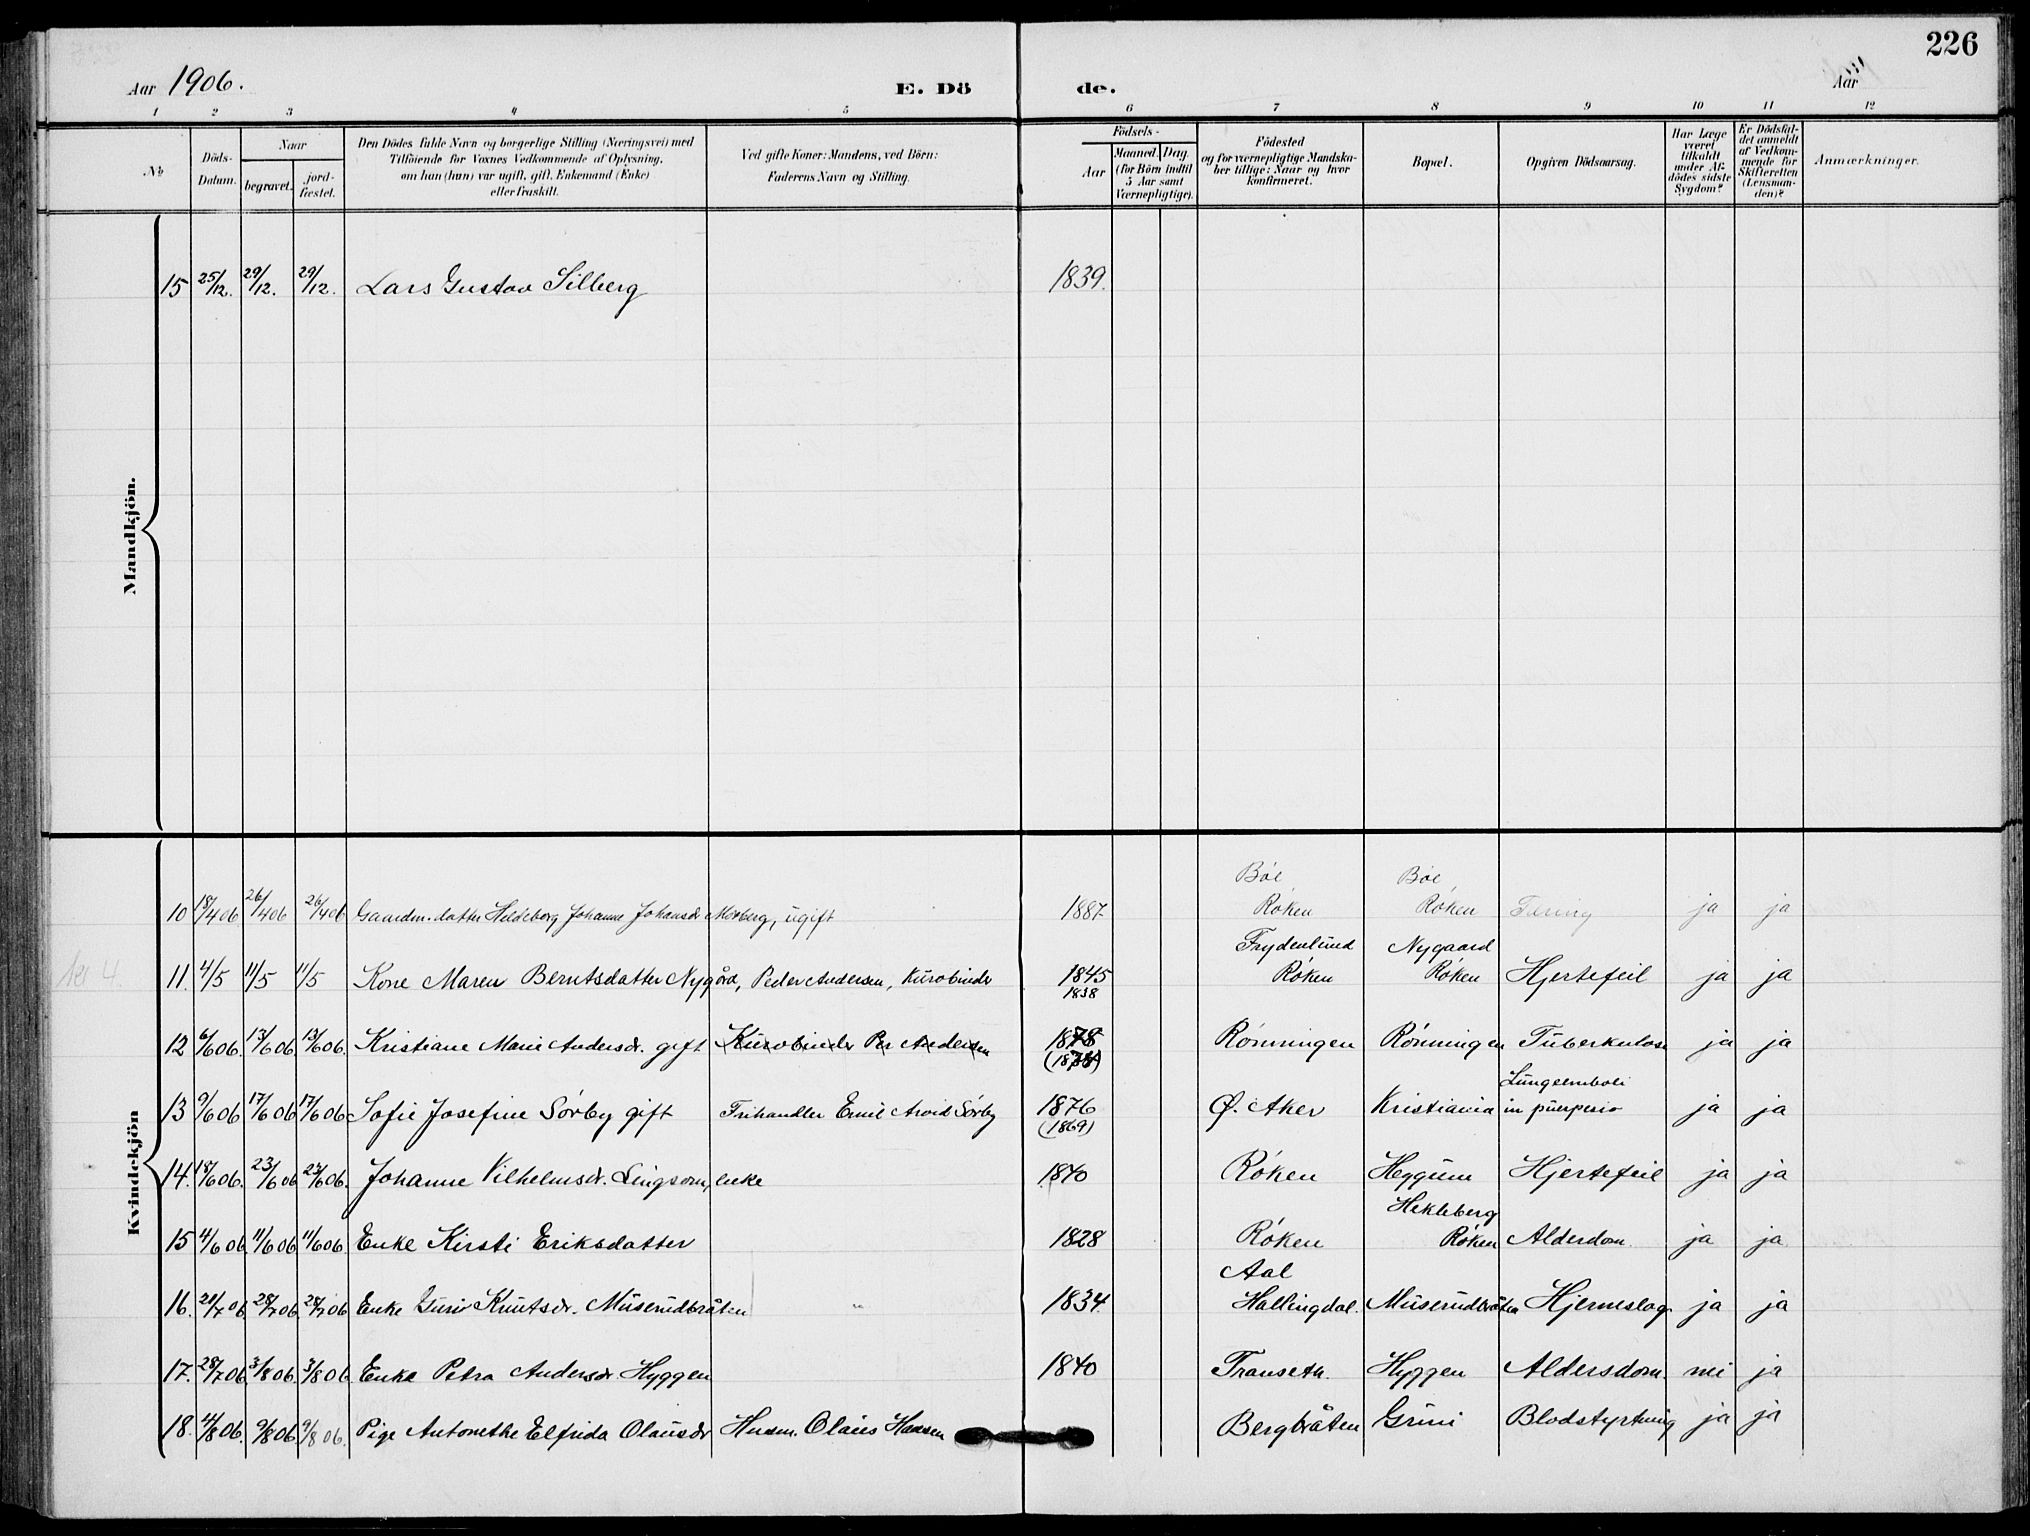 226
Aar 1906. E. Dö de. Aar
1 2 3 4 5 6 7 8 9 10 11 12
No Döds-Datum. Naar begravet. jord-fæstet. Den Dödes fulde Navn og borgerlige Stilling (Næringsvei) med Tilföiende for Voxnes Vedkommende af Oplysning, om han (hun) var ugift, gift, Enkemand (Enke) eller fraskilt. Ved gifte Koner: Mandens, ved Börn: Faderens Navn og Stilling. Födsels- Aar Maaned. Dag. (for Börn indtil 5 Aar samt Værnepligtige). Födested og for værnepligtige Mandska-ber tillige: Naar og hvor konfirmeret. Bopæl. Opgiven Dödsaarsag. Har Læge været tilkaldt under Af-dödes sidste Sygdom? Er Dödsfal-det anmeldt af Vedkom-mende for Skifteretten (Lensman-den)? Anmærkninger.
Mandkjön.
15 25/12. 29/12. 29/12. Lars Gustav Silberg 1839.
Kvindekjön
Böe Böe
10 18/4 06 26/4 06 26/4 06 Gaardm. datter Hildeborg Johanne Johansdr Morberg, ugift 1887 Røken Røken Tæring ja ja
Frydenlund Nygaard
11. 4/5 11/5 11/5 Kone Maren Berntsdatter Nygård, Peder Andersen, Kurvbinder 1845 Røken Røken Hjertefeil ja ja
1838
12 6/6 06. 13/6 06 13/6 06. Kristiane Marie Andersdr. gift Kurvbinder Per Andersen 1878 Rønningen Rønningen Tuberkulose ja ja
Lungeemboli
13 9/6 06 17/6 06 17/6 06 Sofie Josefine Sørby gift Frihandler Emil Arvid Sørby 1876 Ø. Aker Kristiania in puerperio ja ja
(1869)
14. 18/6 06. 23/6 06 23/6 06. Johanne Vilhelmsdr. Lingsom, enke 1840 Røken Heggum Hjertefeil ja ja
Hekleberg
15 4/6 06 11/6 06 11/6 06. Enke Kirsti Eriksdatter 1828 Røken Røken Alderdom. ja ja
Aal
16. 21/7 06. 28/7 06. 28/7 06 Enke Guri Knutsdr. Muserudbråten " 1834 Hallingdal. Muserudbråten Hjerneslag ja ja
17. 28/7 06. 3/8 06. 3/8 06. Enke Petra Andersdr. Hyggen 1840 Transeth. Hyggen Aldersdom. nei ja
18. 4/8 06. 9/8 06. 9/8 06. Pige Antonethe Elfrida Olausdr Husm. Olaus Hansen Bergbråten Grini Blodstyrtning ja ja